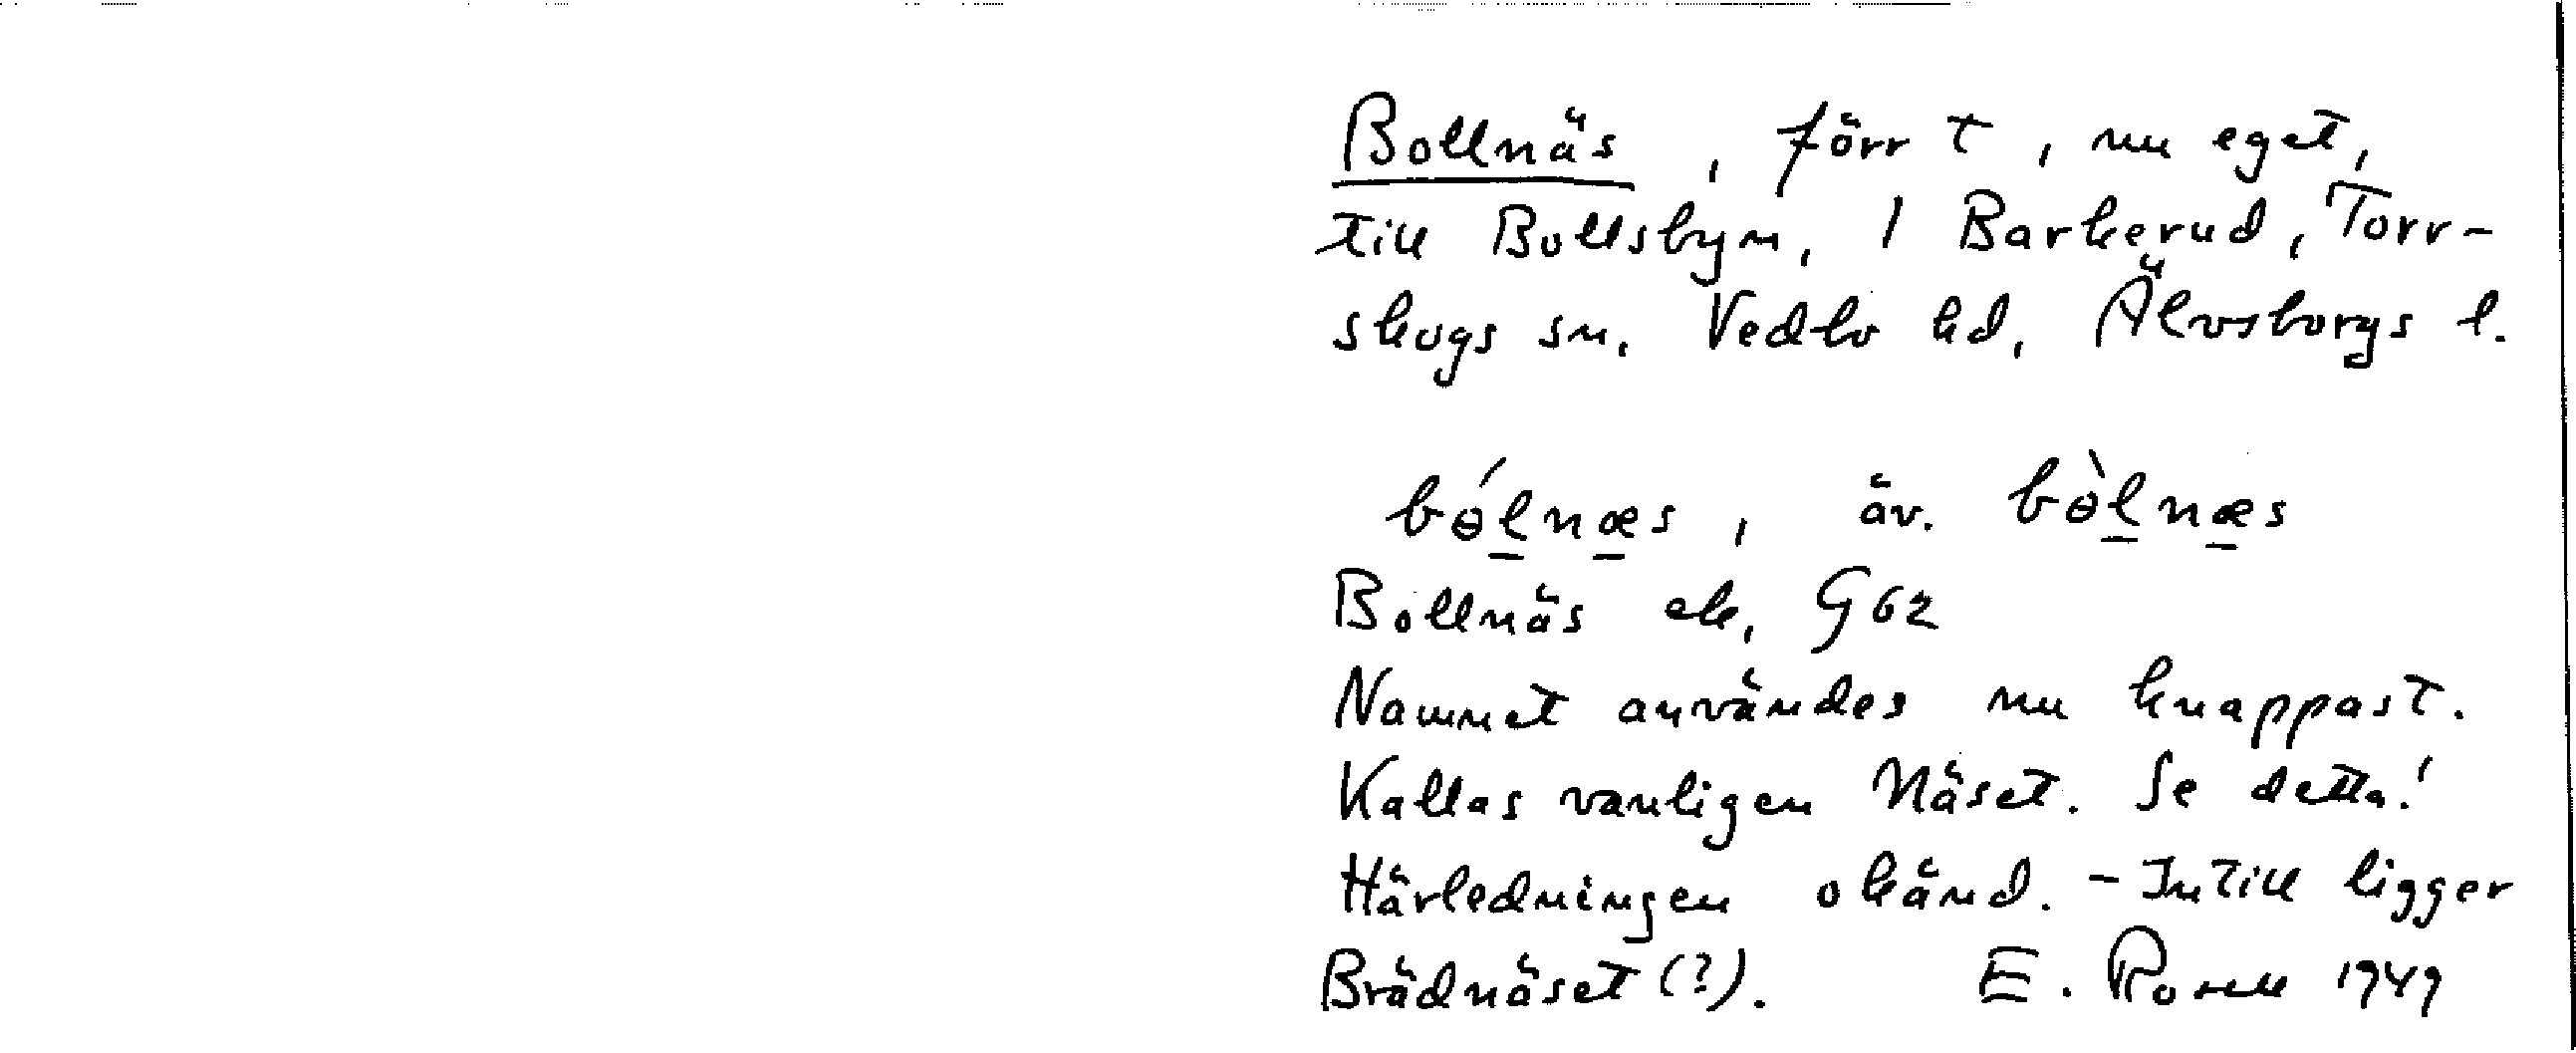 Bollnäs, förr t, nu eget,
till Bollsbyn, 1 Barkerud, Torr-
skogs sn. Vedbo hd, Älvsborgs l.
bɵ́l̲næ̲s, äv. bɵ̀l̲næ̲s
Bollnäs ek, G62
Namnet användes nu knappast.
Kallas vanligen Näset. Se detta!
Härledningen okänd. - Intill ligger
Brädnäset (?). E. Rosell 1949